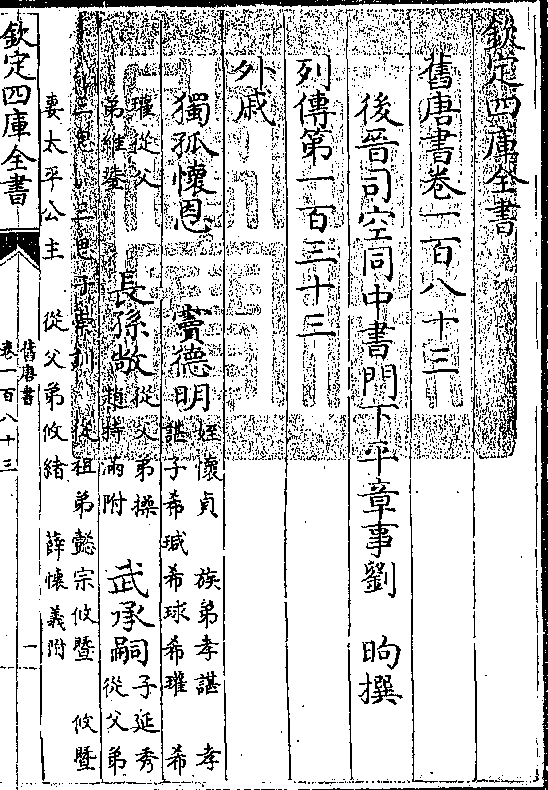 欽定四庫全書
舊唐書卷一百八十三
後晉司空同中書門下平章事劉 昫撰
列傳第一百三十三
外戚
獨孤懷恩 竇德明 姪懷貞 族弟孝諶 孝
諶子希瑊希球希瓘 希
瓘從父
弟維鍌 長孫敞 從父弟操
趙持滿附 武承嗣 子延秀
從父弟
三思 三思子崇訓 從祖弟懿宗攸暨 攸暨
妻太平公主 從父弟攸緒 薛懷義附
欽定四庫全書
舊唐書
卷一百八十三
一